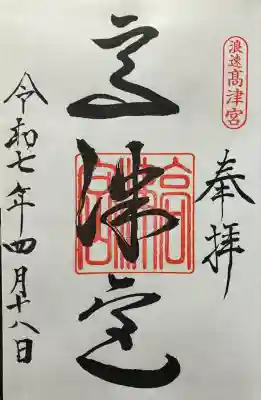 浪速高津宮
奉拝
高津宮
令和七年四月十八日